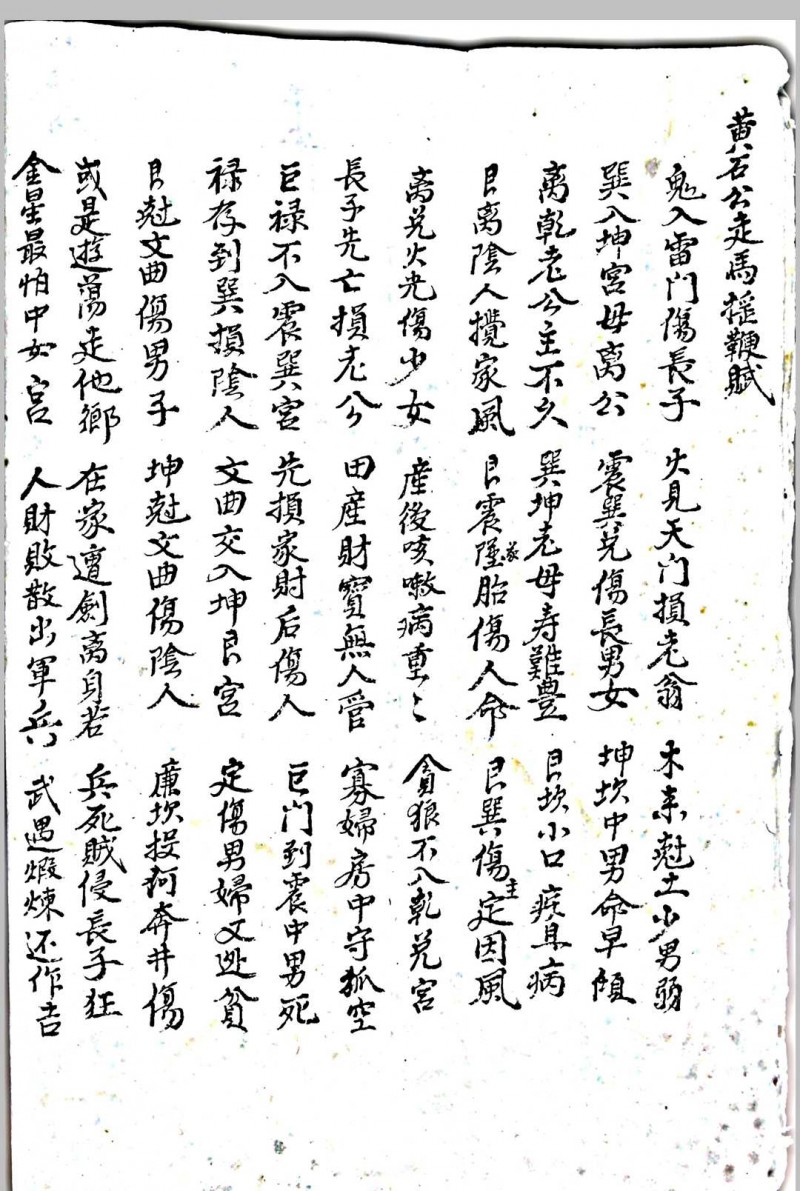 黄石公走馬摇鞭賦
鬼入雷门傷長子 火見天门損老翁 木来尅土少男弱
巽入坤宫母离公 震巽兑傷長男女 坤坎中男命早傾
离乾老公主不久 巽坤老母寿難豊 艮坎小口疾見病
艮离陰人攪家風 艮震墜家胎傷人命 艮巽傷主定因風
离兑火光傷少女 産後咳嗽病重〻 貪狼不入乾兑宫
長子先亡損老公 田産財寳無人管 寡婦房中守孤空
巨禄不入震巽宫 先損家財后傷人 巨门到震中男死
禄存到巽損陰人 文曲交入坤艮宫 定傷男婦又逃貧
艮尅文曲傷男子 坤尅文曲傷陰人 廉坎投河奔井傷
或是遊蕩走他鄉 在家遭劍离身若 兵死賊侵長子狂
金星最怕中女宫 人財敗散出軍兵 武遇煅煉还作吉